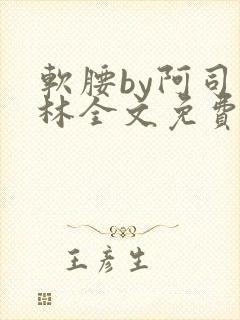 軟腰by阿司
林全文免費
王彥生